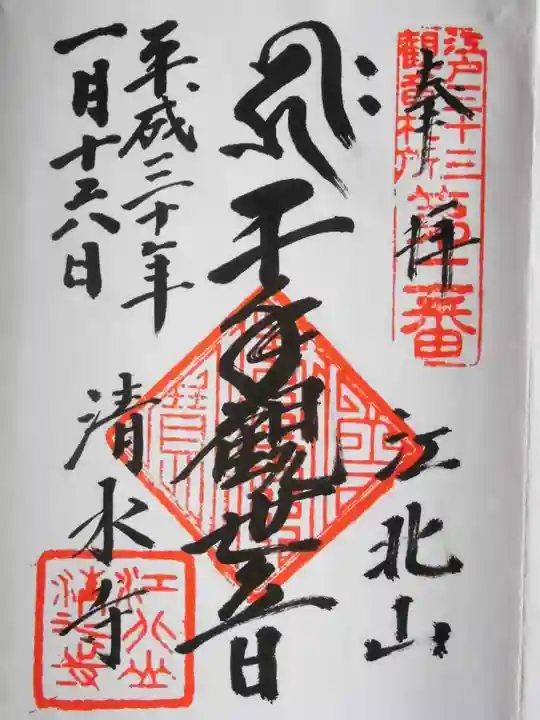 奉拝
江戸三十三
観音札所
第二番
江北山
千手観世音
平成三十年
一月十六日
清水寺
江北山
清水寺